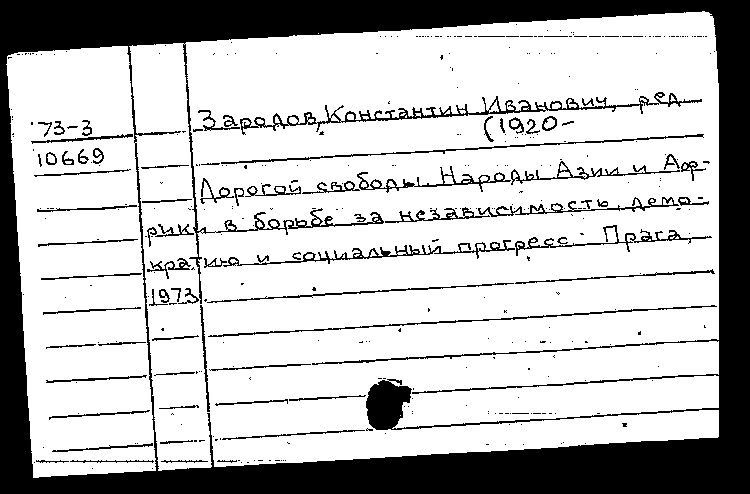 73-3
Зародов, Константин Иванович, ред
(1920-
10669
Дорогой свободы. Народы Азии и Аф-
рики в борьбе за независимость, демо-
кратию и социальный прогресс. Прага,
1973.